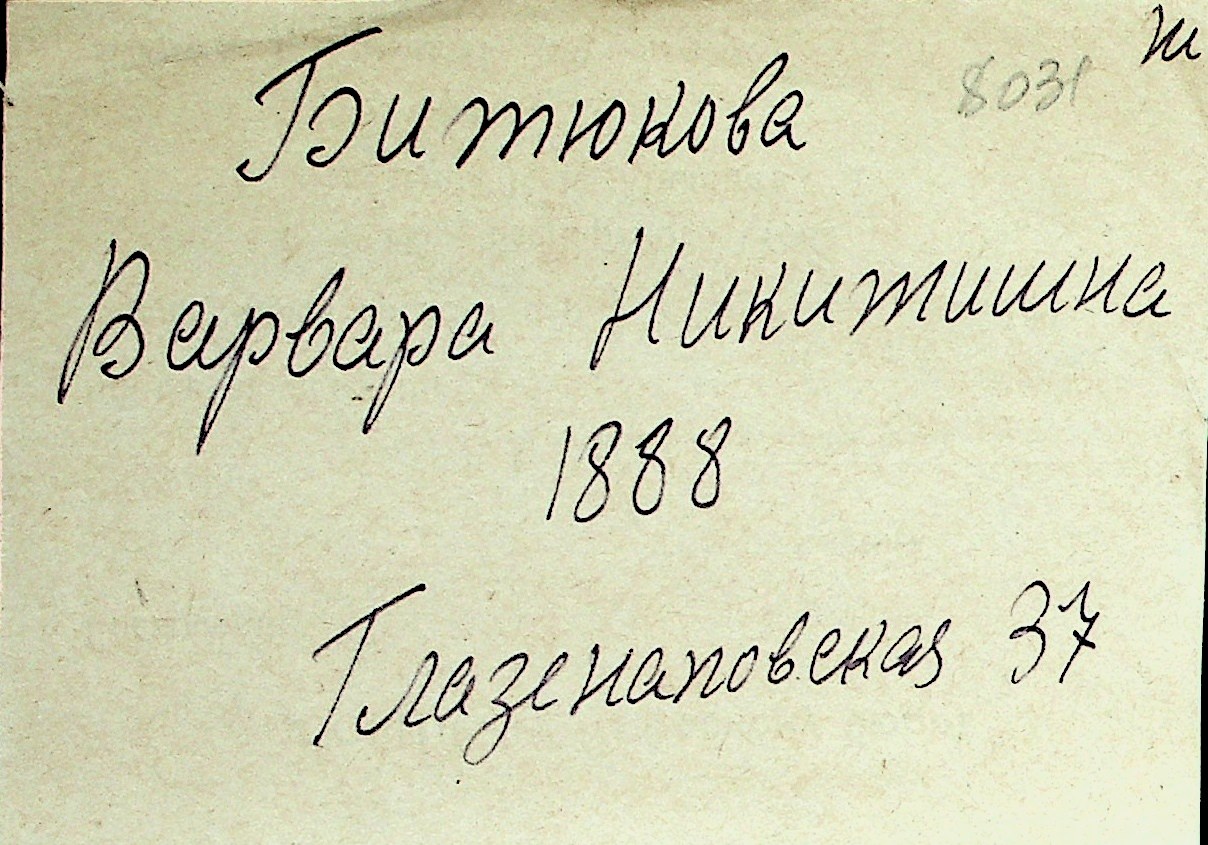 Битюкова 8031 ж
Варвара Никитишна
1888
Глазенаповская 37